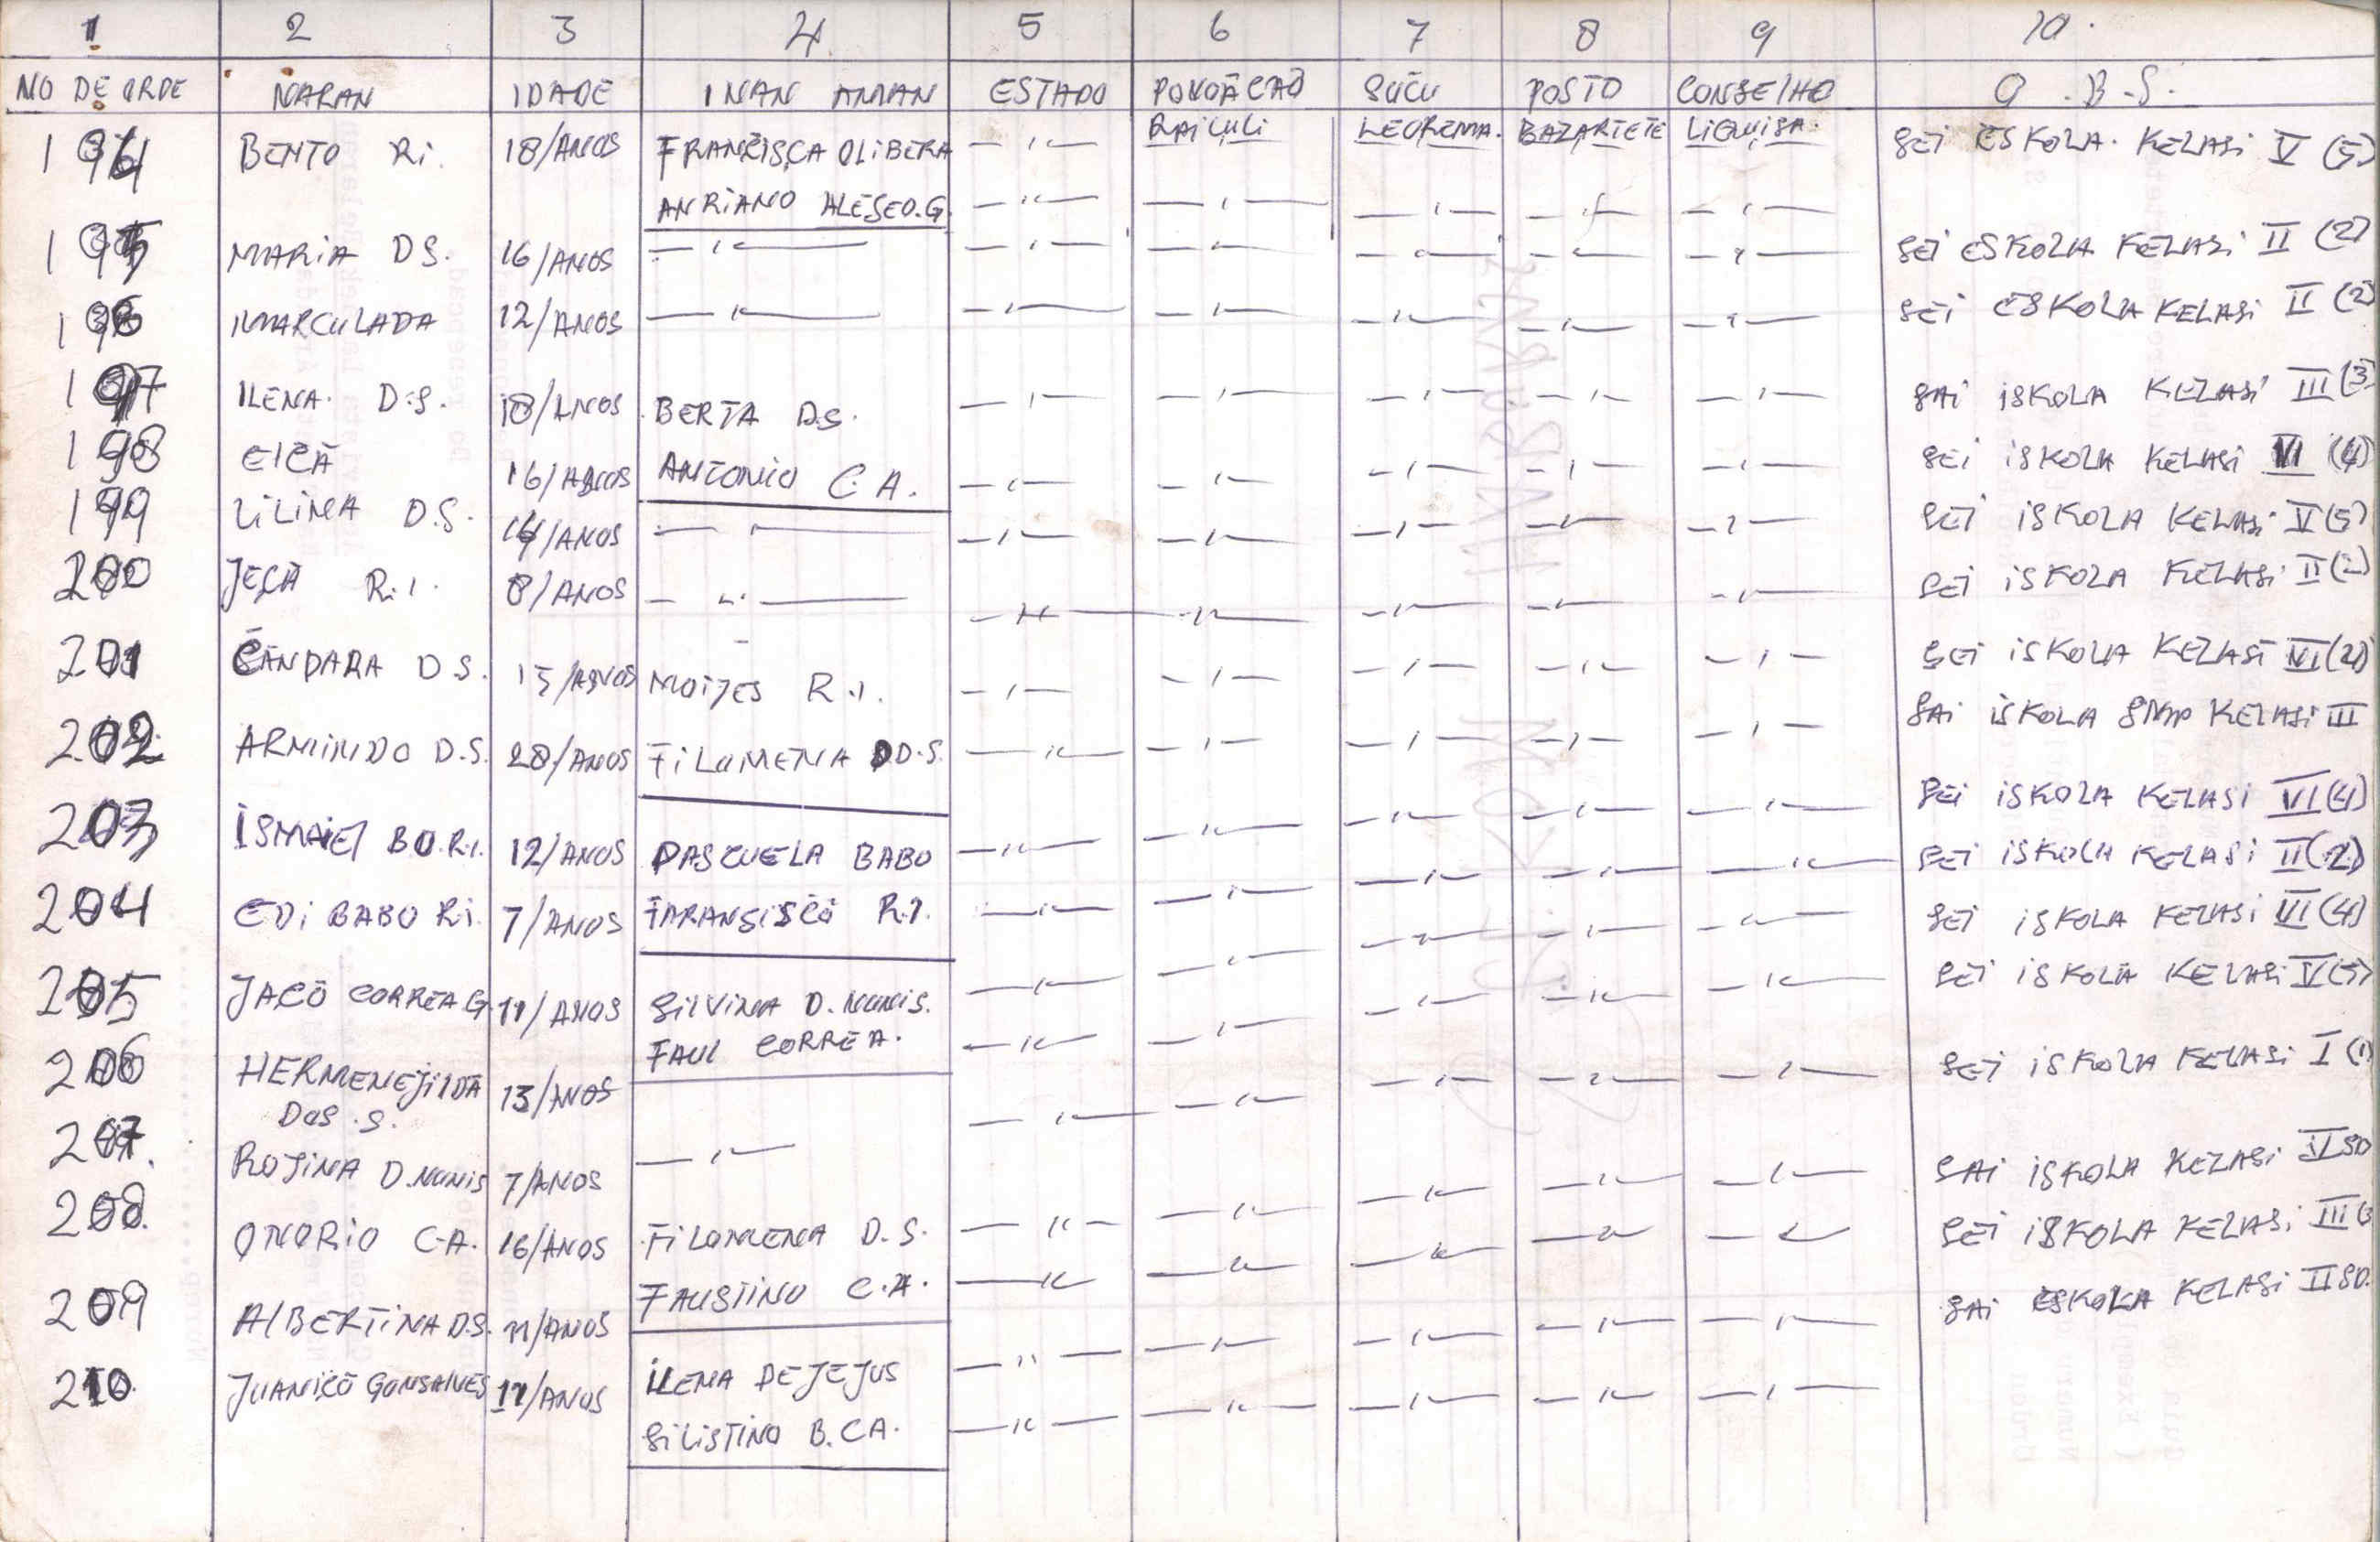 1 2 3 4 5 6 7 8 9 10.
NO DE ORDE NARAN IDADE INAN AMAN ESTADO POVOÃCAÕ SUCU POSTO CONSELHO O.B.S.
194 BENTO R.i. 18/ANOS FRANCISCA OLIBERA RAiCULi LEOREMA. BAZARTETE LiQUiSA. SEi ESKOLA. KELASi V (5)
ANRiANO ALESEO.G.
195 MARiA D S. 16/ANOS SEi ESKOLA KELASi II (2)
196 iMARCULADA 12/ANOS SEi ESKOLA KELASi II (2)
197 ILENA. D.S. 18/ANOS BERTA D.S. SAi iSKOLA KELASi III (3)
198 16/ANOS ANTONiO C.A. SEi iSKOLA KELASi VI (4)
199 LiLiNA D.S. 14/ANOS SEi iSKOLA KELASi V (5)
200 JECÃ R.I. 8/ANOS SEi iSKOLA KELASi II (2)
201 SANDARA D S. 15/ANOS MOiJES R.I. SEi iSKOLA KELASi
202 ARMiNDO D.S. 28/ANOS FiLOMENA D D.S. SAi iSKOLA SMP KELASi III
203 iSMAiEL BO.R.I. 12/ANOS PASCUELA BABO SEi iSKOLA KELASi VI (4)
SEi iSKOLA KELASi II (2)
204 EDi BABO R.i. 7/ANOS FARANSiSCO R.I. SEi iSKOLA KELASi VI (4)
205 JACÕ CORREA G 11/ANOS SiLViNA D. NUNiS. SEi iSKOLA KELASi V (5)
FAUL CORREA.
206 HERMENEJiLDA 13/ANOS SEi iSKOLA KELASi I (1)
DOS.S.
207. ROJiNA D.NUNiS 7/ANOS SAi iSKOLA KELASi SD
208. ONORiO C.A. 16/ANOS FiLOMENA D.S. SEi iSKOLA KELASi III (3
FAUSTiNO C.A.
209 ALBERTiNA D.S. 11/ANOS SAi ESKOLA KELASi II SD.
210 JUANiCÕ GONSALVES 11/ANOS iLENA DE JEJUS
SiLiSTiNO B.CA.